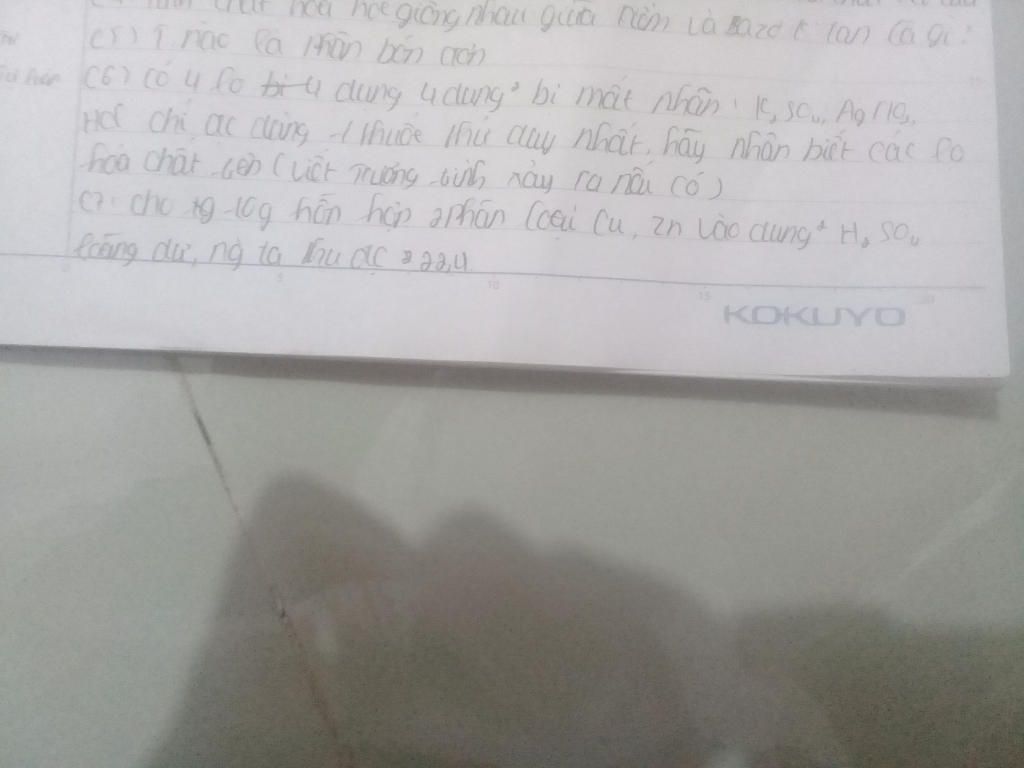 chất hoá học giống nhau giữa kiềm và Bazơ k tan là gì?
C5) T nào là phân bón đơn
C6) có 4 lọ bi 4 dung 4 dung² bị mất nhãn: K₂SO₄, AgNO₃,
HCl chỉ đc dùng 1 thuốc thử duy nhất, hãy nhận biết các lọ
hoá chất trên (viết trương trình xảy ra nếu có)
C7: cho 10g hỗn hợp 2 phân loại Cu, Zn vào dung² H₂SO₄
loãng dư, ng ta thu đc 22,4
5 10 15 20
KOKUYO